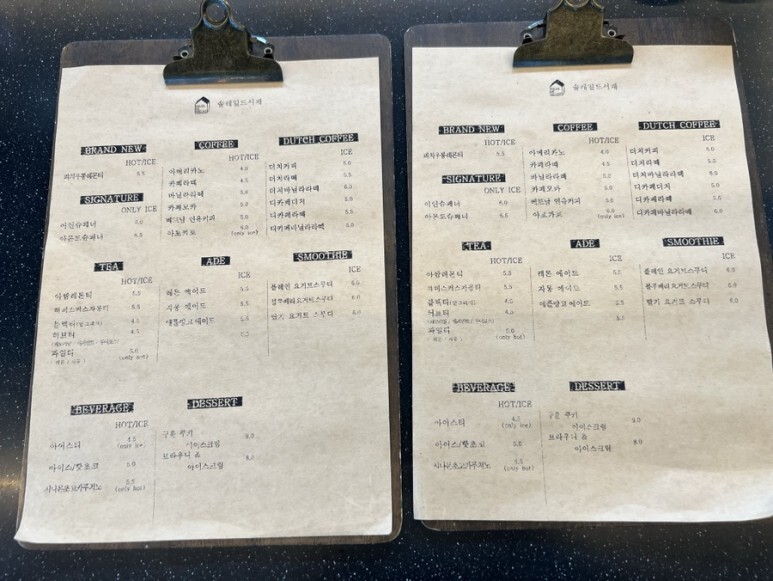 BRAND NEW
HOT/ICE
5.5
SIGNATURE
ONLY ICE
아인슈페너 6.0
아몬드슈페너 6.5
COFFEE
HOT/ICE
아메리카노 4.0
카페라떼 4.5
바닐라라떼 5.0
카페모카 5.0
베트남 연유커피 5.0
아포가토
(only ice)
DUTCH COFFEE
ICE
더치커피 5.0
더치라떼 5.5
더치바닐라라떼 6.0
디카페더치 5.0
디카페라떼 5.5
디카페바닐라라떼 6.0
TEA
HOT/ICE
아쌈레몬티 5.5
5.5
4.5
허브티 4.5
과일티 5.0
(only hot)
ADE
ICE
레몬 에이드 5.5
자몽 에이드 5.5
애플망고에이드 5.5
SMOOTHIE
ICE
플레인 요거트스무디 5.0
블루베리요거트스무디 6.0
딸기 요거트 스무디 6.0
BEVERAGE
HOT/ICE
아이스티 4.5
(only ice)
아이스/핫초코 5.0
시나몬초코카푸치노 5.5
(only hot)
DESSERT
구운 쿠키
아이스크림
브라우니 &
아이스크림 6.0
BRAND NEW
HOT/ICE
5.5
SIGNATURE
ONLY ICE
아인슈페너 6.0
아몬드슈페너 6.5
COFFEE
HOT/ICE
아메리카노 4.0
카페라떼 4.5
바닐라라떼 5.0
카페모카 5.0
베트남 연유커피 5.0
아포가토
(only ice)
DUTCH COFFEE
ICE
더치커피 5.0
더치라떼 5.5
더치바닐라라떼 6.0
디카페더치 5.0
디카페라떼 5.5
디카페바닐라라떼 6.0
TEA
HOT/ICE
아쌈레몬티 5.5
5.5
4.5
허브티 4.5
과일티 5.0
(only hot)
ADE
ICE
레몬 에이드 5.5
자몽 에이드 5.5
애플망고에이드 5.5
SMOOTHIE
ICE
플레인 요거트스무디 5.0
블루베리요거트스무디 6.0
딸기 요거트 스무디 6.0
BEVERAGE
HOT/ICE
아이스티 4.5
(only ice)
아이스/핫초코 5.0
시나몬초코카푸치노 5.5
(only hot)
DESSERT
구운 쿠키
아이스크림
브라우니 &
아이스크림 6.0